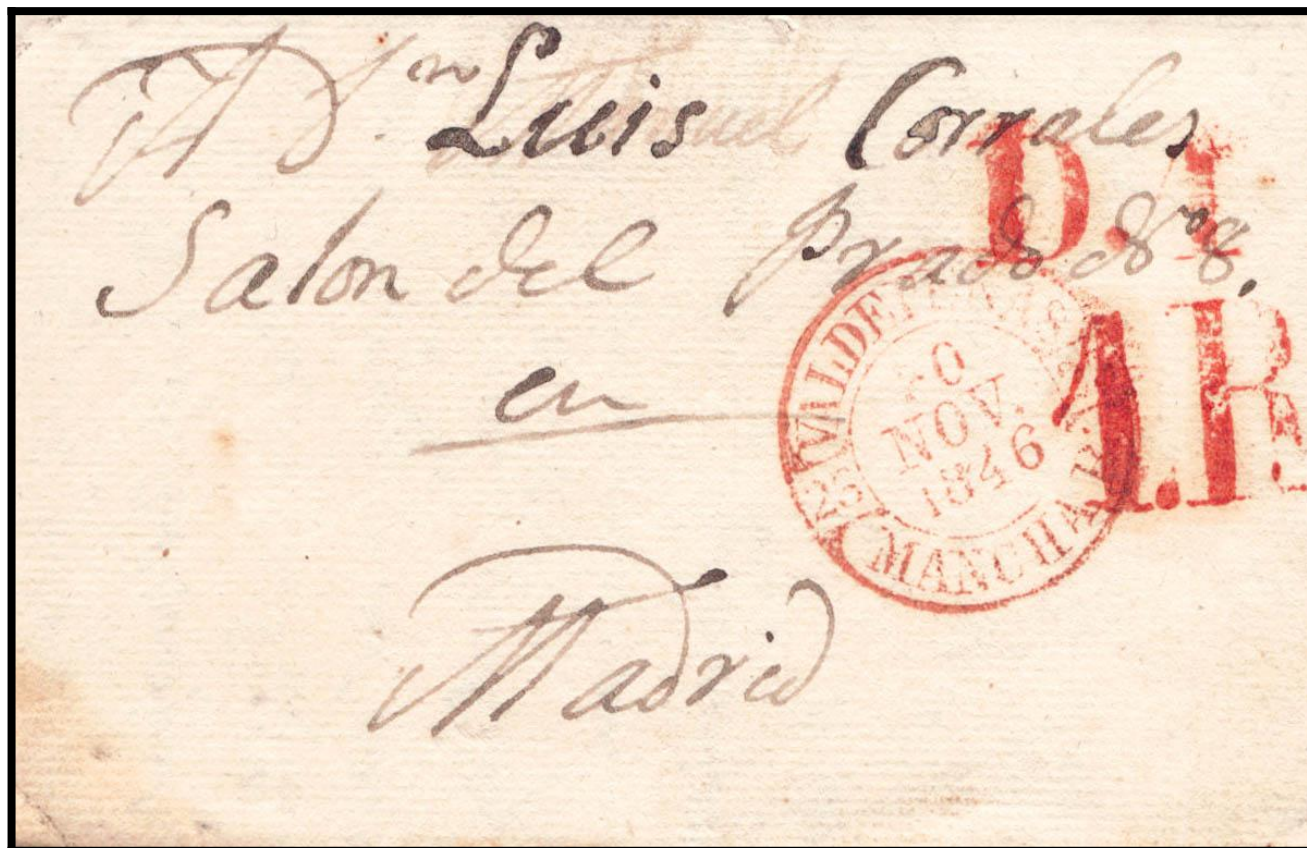 A Dn Luis Corrales
Salon del Prado No 8.
en
Madrid
D. 1
1. R.
VALDEPEÑAS
20
NOV.
1846
MANCHA B.